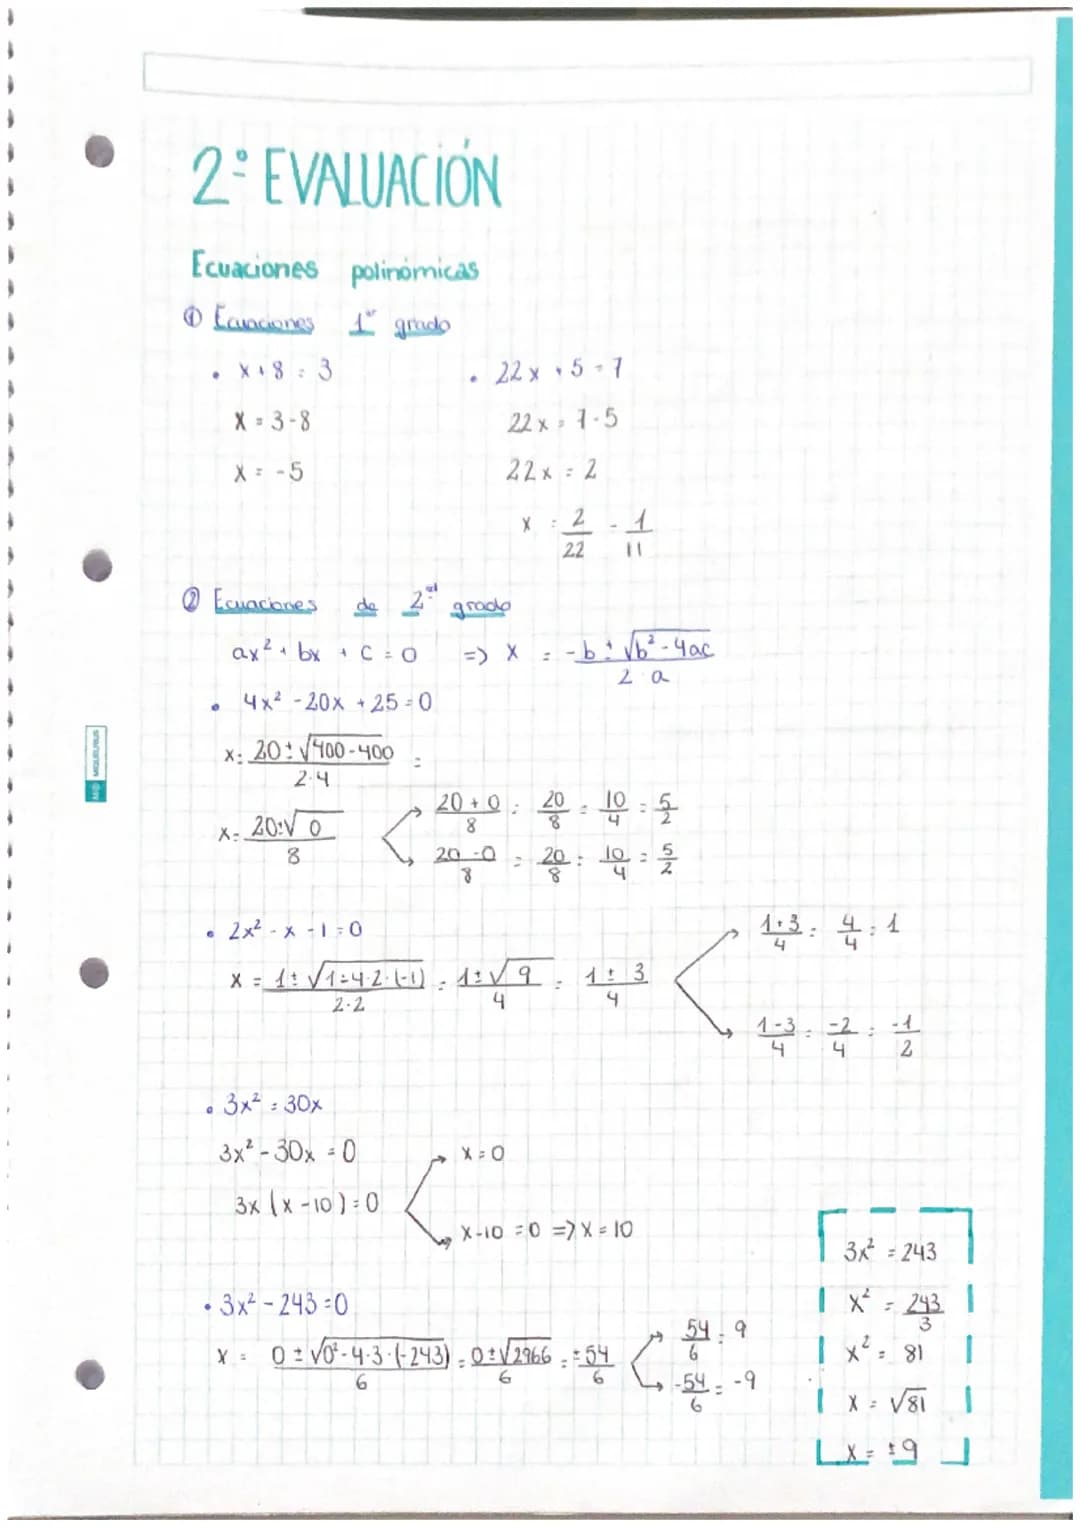 2ª EVALUACIÓN
Ecuaciones polinómicas
① Ecuaciones 1er grado
• x + 8 = 3
x = 3 - 8
x = -5
• 22x + 5 = 7
22x = 7 - 5
22x = 2
x = 2/22 = 1/11
② Ecuaciones de 2º grado
ax² + bx + c = 0 => x = (-b ± √(b² - 4ac))/(2·a)
• 4x² - 20x + 25 = 0
x = (20 ± √(400 - 400))/(2·4) =
x = (20 ± √0)/8
(20 + 0)/8 = 20/8 = 10/4 = 5/2
(20 - 0)/8 = 20/8 = 10/4 = 5/2
• 2x² - x - 1 = 0
x = (1 ± √(1 - 4·2·(-1)))/(2·2) = (1 ± √9)/4 = (1 ± 3)/4
(1 + 3)/4 = 4/4 = 1
(1 - 3)/4 = -2/4 = -1/2
• 3x² = 30x
3x² - 30x = 0
3x (x - 10) = 0
x = 0
x - 10 = 0 => x = 10
• 3x² - 243 = 0
x = (0 ± √(0² - 4·3·(-243)))/6 = (0 ± √2966)/6 = ±54/6
54/6 = 9
-54/6 = -9
3x² = 243
x² = 243/3
x² = 81
x = √81
x = ±9
MIQUELRIUS